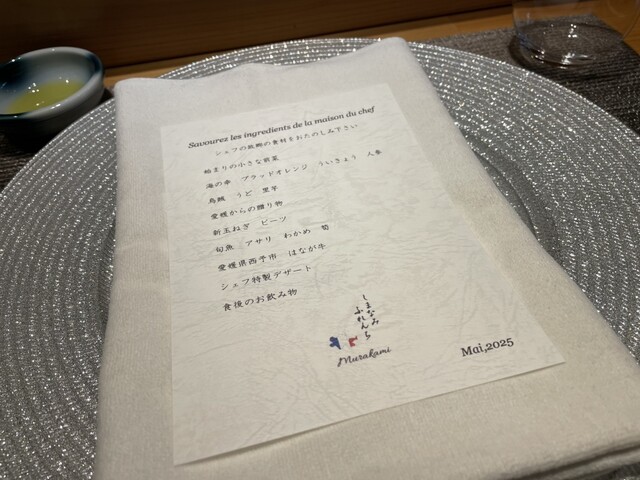 Savourez les ingredients de la maison du chef
シェフの故郷の素材をおたのしみ下さい
始まりの小さな前菜
海の幸 ブラッドオレンジ ういきょう 人参
烏賊 うど 里芋
愛媛からの贈り物
新玉ねぎ ビーツ
旬魚 アサリ わかめ 筍
愛媛県西予市 はなが牛
シェフ特製デザート
食後のお飲み物
しまなみ
ふれんち
Murakami
Mai,2025